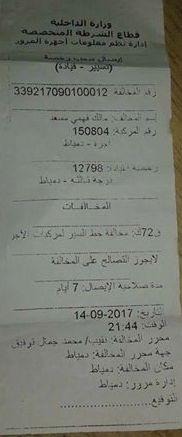 وزارة الداخلية
قطاع الشرطة المتخصصة
إدارة نظم معلومات أجهزة المرور
إيصال سحب رخصة
(تسيير - قيادة)
رقم المخالفة: 339217090100012
إسم المخالف: مالك فهمي مسعد
رقم المركبة: 150804
أجرة - دمياط
رخصة القيادة: 12798
درجة ثالثة - دمياط
المخالفات
ق72ك: مخالفة خط السير لمركبات الأجر
لايجوز التصالح على المخالفة
مدة صلاحية الإيصال: 7 أيام
التاريخ: 14-09-2017
الوقت: 21:44
محرر المخالفة: نقيب/ محمد جمال توفيق
جهة محرر المخالفة: دمياط
مكان المخالفة: دمياط
إدارة مرور: دمياط
التوقيع..................